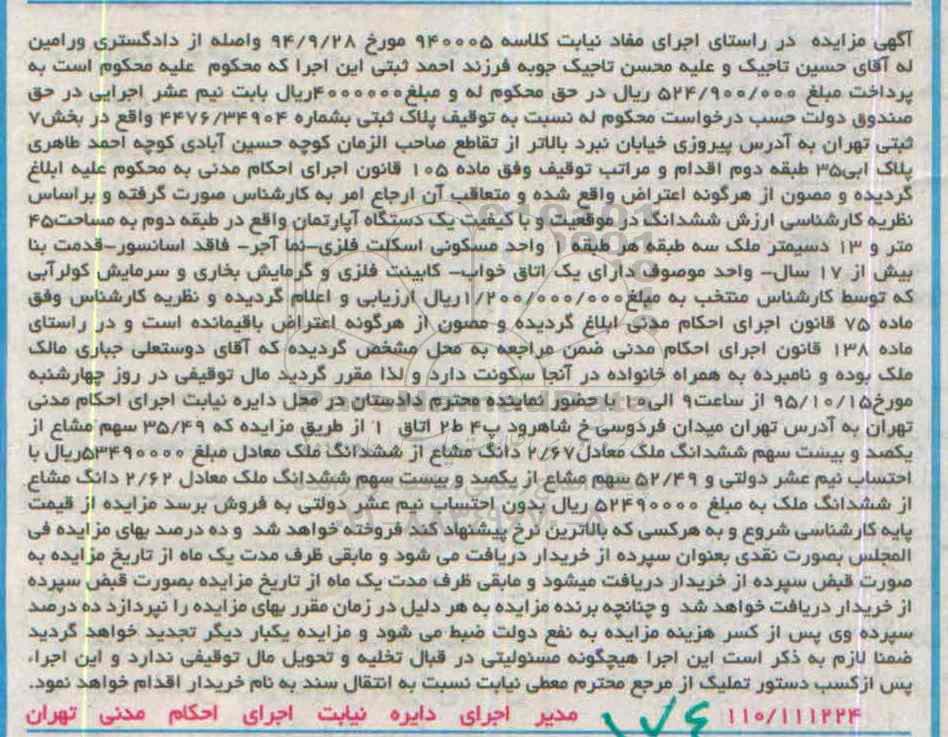 آگهی مزایده در راستای اجرای مفاد نیابت کلاسه ۹۴۰۰۰۵ مورخ ۹۴/۹/۲۸ واصله از دادگستری ورامین
له آقای حسین تاجیک و علیه محسن تاجیک جوبه فرزند احمد ثبتی این اجرا که محکوم علیه محکوم است به
پرداخت مبلغ ۵۲۴/۹۰۰/۰۰۰ ریال در حق محکوم له و مبلغ ۴۰۰۰۰۰۰ریال بابت نیم عشر اجرایی در حق
صندوق دولت حسب درخواست محکوم له نسبت به توقیف پلاک ثبتی بشماره ۴۴۷۶/۳۴۹۰۴ واقع در بخش۷
ثبتی تهران به آدرس پیروزی خیابان نبرد بالاتر از تقاطع صاحب الزمان کوچه حسین آبادی کوچه احمد طاهری
پلاک ابی۳۵ طبقه دوم اقدام و مراتب توقیف وفق ماده ۱۰۵ قانون اجرای احکام مدنی به محکوم علیه ابلاغ
گردیده و مصون از هرگونه اعتراض واقع شده و متعاقب آن ارجاع امر به کارشناس صورت گرفته و براساس
نظریه کارشناسی ارزش ششدانگ در موقعیت و با کیفیت یک دستگاه آپارتمان واقع در طبقه دوم به مساحت۴۵
متر و ۱۳ دسیمتر ملک سه طبقه هر طبقه ۱ واحد مسکونی اسکلت فلزی-نما آجر- فاقد اسانسور-قدمت بنا
بیش از ۱۷ سال- واحد موصوف دارای یک اتاق خواب- کابینت فلزی و گرمایش بخاری و سرمایش کولرآبی
که توسط کارشناس منتخب به مبلغ۱/۲۰۰/۰۰۰/۰۰۰ریال ارزیابی و اعلام گردیده و نظریه کارشناس وفق
ماده ۷۵ قانون اجرای احکام مدنی ابلاغ گردیده و مصون از هرگونه اعتراض باقیمانده است و در راستای
ماده ۱۳۸ قانون اجرای احکام مدنی ضمن مراجعه به محل مشخص گردیده که آقای دوستعلی جباری مالک
ملک بوده و نامبرده به همراه خانواده در آنجا سکونت دارد و لذا مقرر گردید مال توقیفی در روز چهارشنبه
مورخ۹۵/۱۰/۱۵ از ساعت۹ الی۱۰ با حضور نماینده محترم دادستان در محل دایره نیابت اجرای احکام مدنی
تهران به آدرس تهران میدان فردوسی خ شاهرود پ۴ ط۲ اتاق ۱ از طریق مزایده که ۳۵/۴۹ سهم مشاع از
یکصد و بیست سهم ششدانگ ملک معادل۲/۶۷ دانگ مشاع از ششدانگ ملک معادل مبلغ ۵۳۴۹۰۰۰۰ریال با
احتساب نیم عشر دولتی و ۵۲/۴۹ سهم مشاع از یکصد و بیست سهم ششدانگ ملک معادل ۲/۶۲ دانگ مشاع
از ششدانگ ملک به مبلغ ۵۲۴۹۰۰۰۰ ریال بدون احتساب نیم عشر دولتی به فروش برسد مزایده از قیمت
پایه کارشناسی شروع و به هرکسی که بالاترین نرخ پیشنهاد کند فروخته خواهد شد و ده درصد بهای مزایده فی
المجلس بصورت نقدی بعنوان سپرده از خریدار دریافت می شود و مابقی ظرف مدت یک ماه از تاریخ مزایده به
صورت قبض سپرده از خریدار دریافت میشود و مابقی ظرف مدت یک ماه از تاریخ مزایده بصورت قبض سپرده
از خریدار دریافت خواهد شد و چنانچه برنده مزایده به هر دلیل در زمان مقرر بهای مزایده را نپردازد ده درصد
سپرده وی پس از کسر هزینه مزایده به نفع دولت ضبط می شود و مزایده یکبار دیگر تجدید خواهد گردید
ضمنا لازم به ذکر است این اجرا هیچگونه مسئولیتی در قبال تخلیه و تحویل مال توقیفی ندارد و این اجراء
پس ازکسب دستور تملیک از مرجع محترم معطی نیابت نسبت به انتقال سند به نام خریدار اقدام خواهد نمود.
۱۱۰/۱۱۱۲۲۴ مدیر اجرای دایره نیابت اجرای احکام مدنی تهران